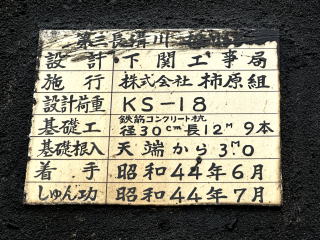 第三長溝川
設計 下関工事局
施行 株式会社 柿原組
設計荷重 KS-18
基礎工 鉄筋コンクリート杭 径30cm長12M 9本
基礎根入 天端から3M0
着手 昭和44年6月
しゅん功 昭和44年7月